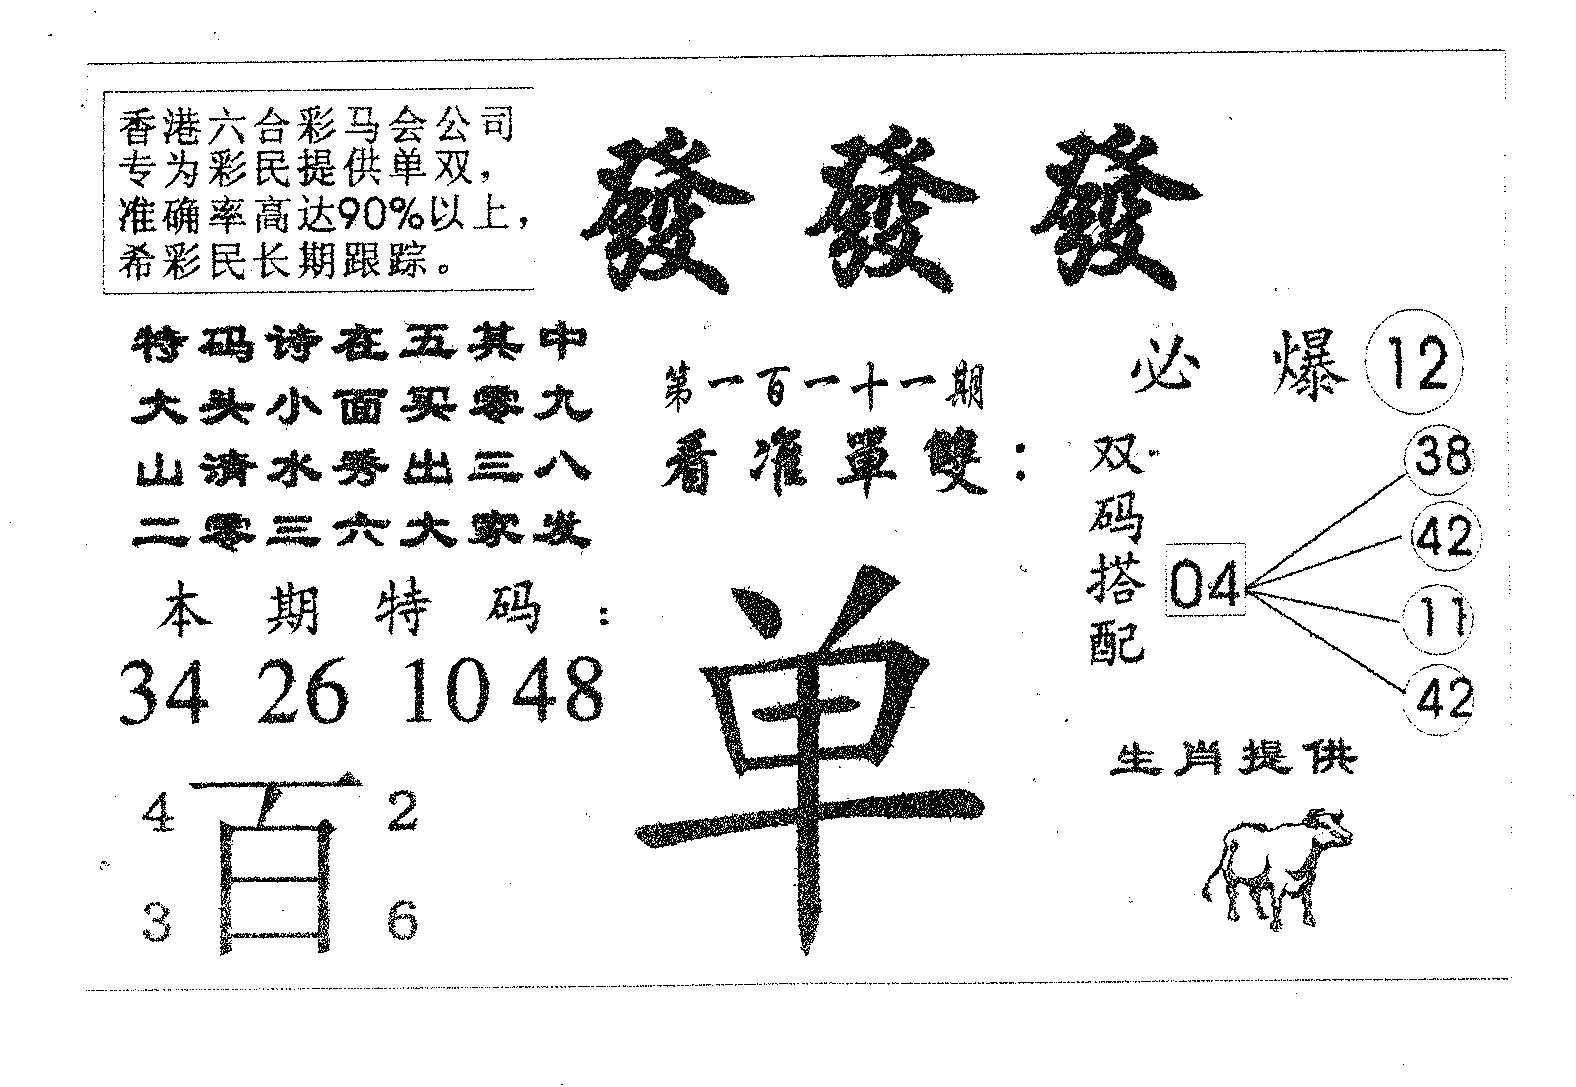 香港六合彩马会公司
专为彩民提供单双，
准确率高达90%以上，
希彩民长期跟踪。
發發發
特码诗在五其中
大头小面买零九
山清水秀出三八
二零三六大家发
本期特码：
34 26 10 48
4 2
百
3 6
第一百一十一期
看准單雙：
单
必爆 12
双码搭配
04
38
42
11
42
生肖提供